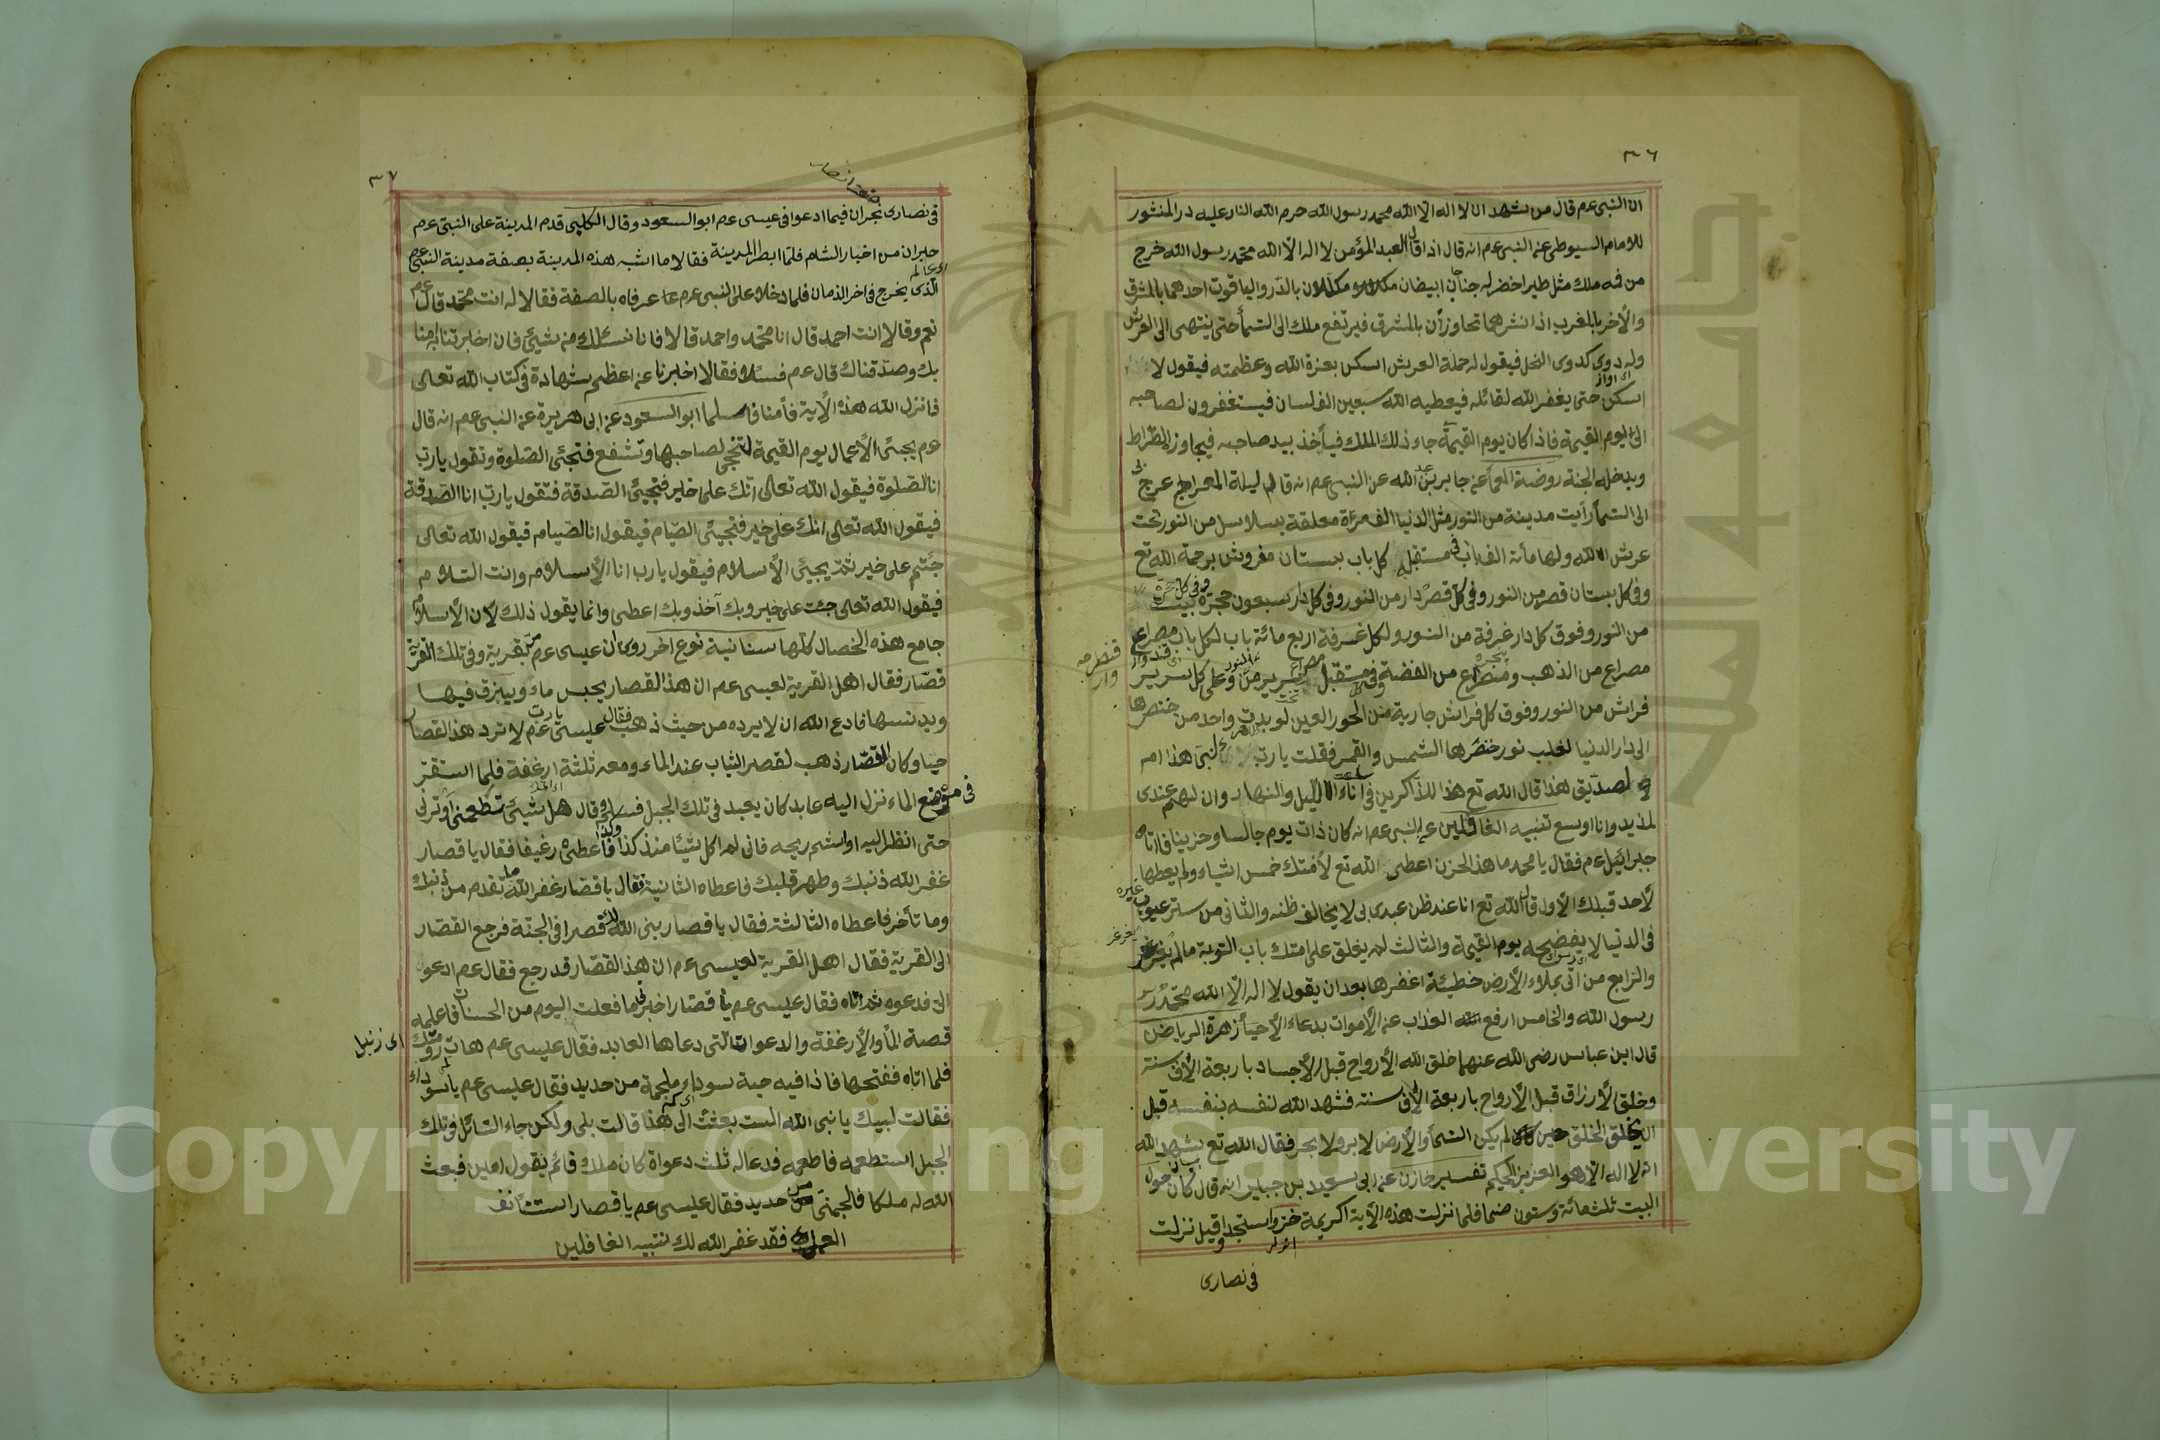 ٣٦
ان النبى عم قال من شهد ان لا اله الا الله محمد رسول الله حرم الله النار عليه در المنثور
للامام السيوطى عن النبى عم انه قال اذا قال العبد المؤمن لا اله الا الله محمد رسول الله خرج
من فمه ملك مثل طير اخضر له جناحان ابيضان مكللان بالدر والياقوت احدهما بالمشرق
والأخر بالمغرب اذا نشرهما تجاوزان بالمشرق فيرتفع ملك الى السمأ حتى ينتهى الى العرش
وله دوى كدوى النحل فيقول له حملة العرش اسكن بعزة الله وعظمته فيقول لا
اى اواز
اسكن حتى يغفر الله لقائله فيعطيه الله سبعين الف لسان فيستغفرون لصاحبه
الى يوم القيمة فاذا كان يوم القيمة جاء ذلك الملك فيأخذ بيد صاحبه فيجاوز الصراط
ويدخله الجنة روضة العلمأ عن جابر بن عبد الله عن النبى عم انه قال لم ليلة المعراج عرج بى
الى السمأ رأيت مدينة من النور مثل الدنيا الف مرة معلقة بسلاسل من النور تحت
عرش الله ولها مأئة الف باب فى مستقبل كل باب بستان مفروش برحمة الله تع
وفى كل بستان قصر من النور وفى كل قصر دار من النور وفى كل دار سبعون حجرة وفى كل حجرة بيت
من النور وفوق كل دار غرفة من النور ولكل غرفة اربع مائة باب لكل باب مصراع
مصراع من الذهب ومصراع من الفضة وفى مستقبل مصراع سرير من النور وعلى كل سرير
فراش من النور وفوق كل فراش جارية من الحور العين لو بدت واحد من خنصرها
الى دار الدنيا لغلب نور خنصرها الشمس والقمر فقلت يا رب لنبى هذا ام
لصديق هذا قال الله تع هذا للذاكرين فى أناء الليل والنهار وان لهم عندى
لمزيد وانا اوسع تنبيه الغافلين عن النبى عم انه كان ذات يوم جالسا وحزينا فاتاه
جبرائيل عم فقال يا محمد ما هذا الحزن اعطى الله تع لأمتك خمس اشياء ولم يعطها
لأحد قبلك الأول قال الله تع انا عند ظن عبدى بى لا يخالف ظنه والثانى من ستر عيوب غيره
فى الدنيا لا يفضحه يوم القيمة والثالث لم يغلق على امتك باب التوبة ما لم يغرغر
والرابع من اتى بملاء الأرض خطيئة اغفرها بعد ان يقول لا اله الا الله محمد
رسول الله والخامس ارفع العذاب عن الأموات بدعاء الأحيأ زهرة الرياض
قال ابن عباس رضى الله عنهما خلق الله الأرواح قبل الأجساد باربعة الأف سنة
وخلق الأرزاق قبل الأرواح باربعة الأف سنة فشهد الله لنفسه بنفسه قبل
ان يخلق الخلق حين لم يكن السمأ والأرض لا بر ولا بحر فقال الله تع شهد الله
انه لا اله الا هو العزيز الحكيم تفسير خازن عن ابى سعيد بن جبير انه قال كان حول
البيت ثلثمائة وستون صنما فلما نزلت هذه الأية الكريمة خروا سجدا وقيل نزلت
فى نصارى
٣٧
فى نصارى نجران فيما ادعوا فى عيسى عم ابو السعود وقال الكلبى قدم المدينة على النبى عم
حبران من احبار الشام فلما ابصر المدينة فقالا ما اشبه هذه المدينة بصفة مدينة النبى عم
اى عالم
الذى يخرج فى اخر الزمان فلما دخلا على النبى عم عرفاه بالصفة فقالا له انت محمد قال عم
نعم وقالا انت احمد قال انا محمد واحمد قالا فانا نسئلك من شيئ فان اخبرتنا به امنا
بك وصدقناك قال عم فسئلا فقالا اخبرنا عن اعظم شهادة فى كتاب الله تعالى
فانزل الله هذه الأية فأمنا فاسلما ابو السعود عن ابى هريرة عن النبى عم انه قال
عم يجيئ الأعمال يوم القيمة لتنجى لصاحبها وتشفع فتجئ الصلوة وتقول يا رب
انا الصلوة فيقول الله تعالى انك على خير فتجيئ الصدقة فتقول يا رب انا الصدقة
فيقول الله تعالى انك على خير فتجيئ الصيام فيقول انا الصيام فيقول الله تعالى
جئتم على خير ثم يجيئ الأسلام فيقول يا رب انا الأسلام وانت السلام
فيقول الله تعالى جئت على خير وبك آخذ وبك اعطى وانما يقول ذلك لأن الأسلام
جامع هذه الخصال كلها سنانية نوع اخر روى ان عيسى عم مر بقرية وفى تلك القرية
قصار فقال اهل القرية لعيسى عم ان هذا القصار يحبس ماء ويبزق فيها
ويدنسها فادع الله ان لا يرده من حيث ذهب فقال عيسى عم يا رب لا ترد هذا القصار
حيا وكان القصار ذهب لقصر الثياب عند الماء ومعه ثلثة ارغفة فلما استقر
فى موضع الماء نزل اليه عابد كان يعبد فى تلك الجبل فسلم وقال هل شيئ تطعمنى او ترنى
حتى انظر اليه او اشم ريحه فانى لم اكل شيئا منذ كذا وكذا فاعطى رغيفا فقال يا قصار
غفر الله ذنبك وطهر قلبك فاعطاه الثانية فقال يا قصار غفر الله ما تقدم من ذنبك
وما تأخر فاعطاه الثالثة فقال يا قصار بنى الله لك قصرا فى الجنة فرجع القصار
الى القرية فقال اهل القرية لعيسى عم ان هذا القصار قد رجع فقال عم ادعوه
الى فدعوه ثم اتاه فقال عيسى عم يا قصار اخبرنى ما فعلت اليوم من الحسنات فاعلمه
قصة المأ والأرغفة والدعوات التى دعاها العابد فقال عيسى عم هات رزمتك
اى زنبل
فلما اتاه ففتحها فاذا فيه حية سوداء ملجمة من حديد فقال عيسى عم يا سوداء
فقالت لبيك يا نبى الله الست بعثت الى هذا قالت بلى ولكن جاء السائل فى تلك
الجبل استطعمه فاطعمه فدعا له ثلث دعواة كان ملك قائم يقول امين فبعث
الله له ملكا فالجمنى من حديد فقال عيسى عم يا قصار استأنف
العمل فقد غفر الله لك تنبيه الغافلين
Copyright © King Saud University